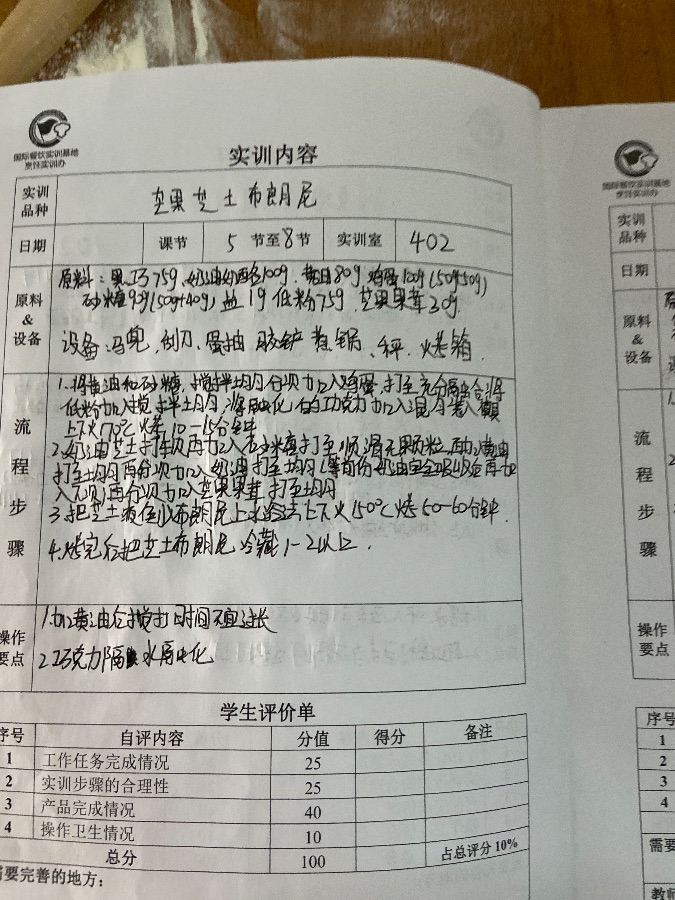 国际餐饮实训基地
烹饪实训办
实训内容
实训品种 芒果芝士布朗尼
日期 课节 5 节至 8 节 实训室 402
原料&设备
原料：黑巧75g、奶油奶酪100g、黄油80g、鸡蛋100g(50g50g)
砂糖90g(50g+40g)、盐1g 低粉75g、芒果果茸30g
设备：马兜、刮刀、蛋抽 胶铲 煮锅、秤、烤箱
流程步骤
1、将黄油和砂糖，搅拌均匀分次加入鸡蛋，打至充分融合将
低粉加入搅拌均匀，将融化的巧克力加入混匀装入模
上下火170℃烤10-15分钟
2、奶油芝士打软再加入砂糖打至顺滑无颗粒，再加黄油
打至均匀再分次加入奶油打至均匀(等前份奶油完全吸收后再加
入下次)再分次加入芒果果茸打至均匀
3、把芝士液倒入布朗尼上水浴法上下火150℃烤50-60分钟.
4.烤完后把芝士布朗尼冷藏1-2小时.
操作要点
1.加黄油后搅打时间不宜过长
2.巧克力隔水融化
学生评价单
序号 自评内容 分值 得分 备注
1 工作任务完成情况 25
2 实训步骤的合理性 25
3 产品完成情况 40
4 操作卫生情况 10
总分 100 占总评分10%
需要完善的地方：
国际餐饮实训基地
烹饪实训办
实训品种
日期
原料&设备
流程步骤
操作要点
序号
1
2
3
4
需要
教师